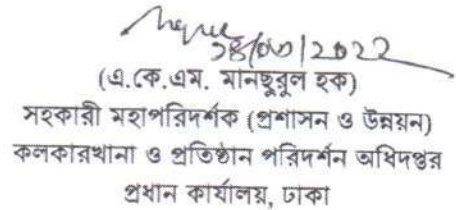 28/03/2022
(এ.কে.এম. মানছুরুল হক)
সহকারী মহাপরিদর্শক (প্রশাসন ও উন্নয়ন)
কলকারখানা ও প্রতিষ্ঠান পরিদর্শন অধিদপ্তর
প্রধান কার্যালয়, ঢাকা